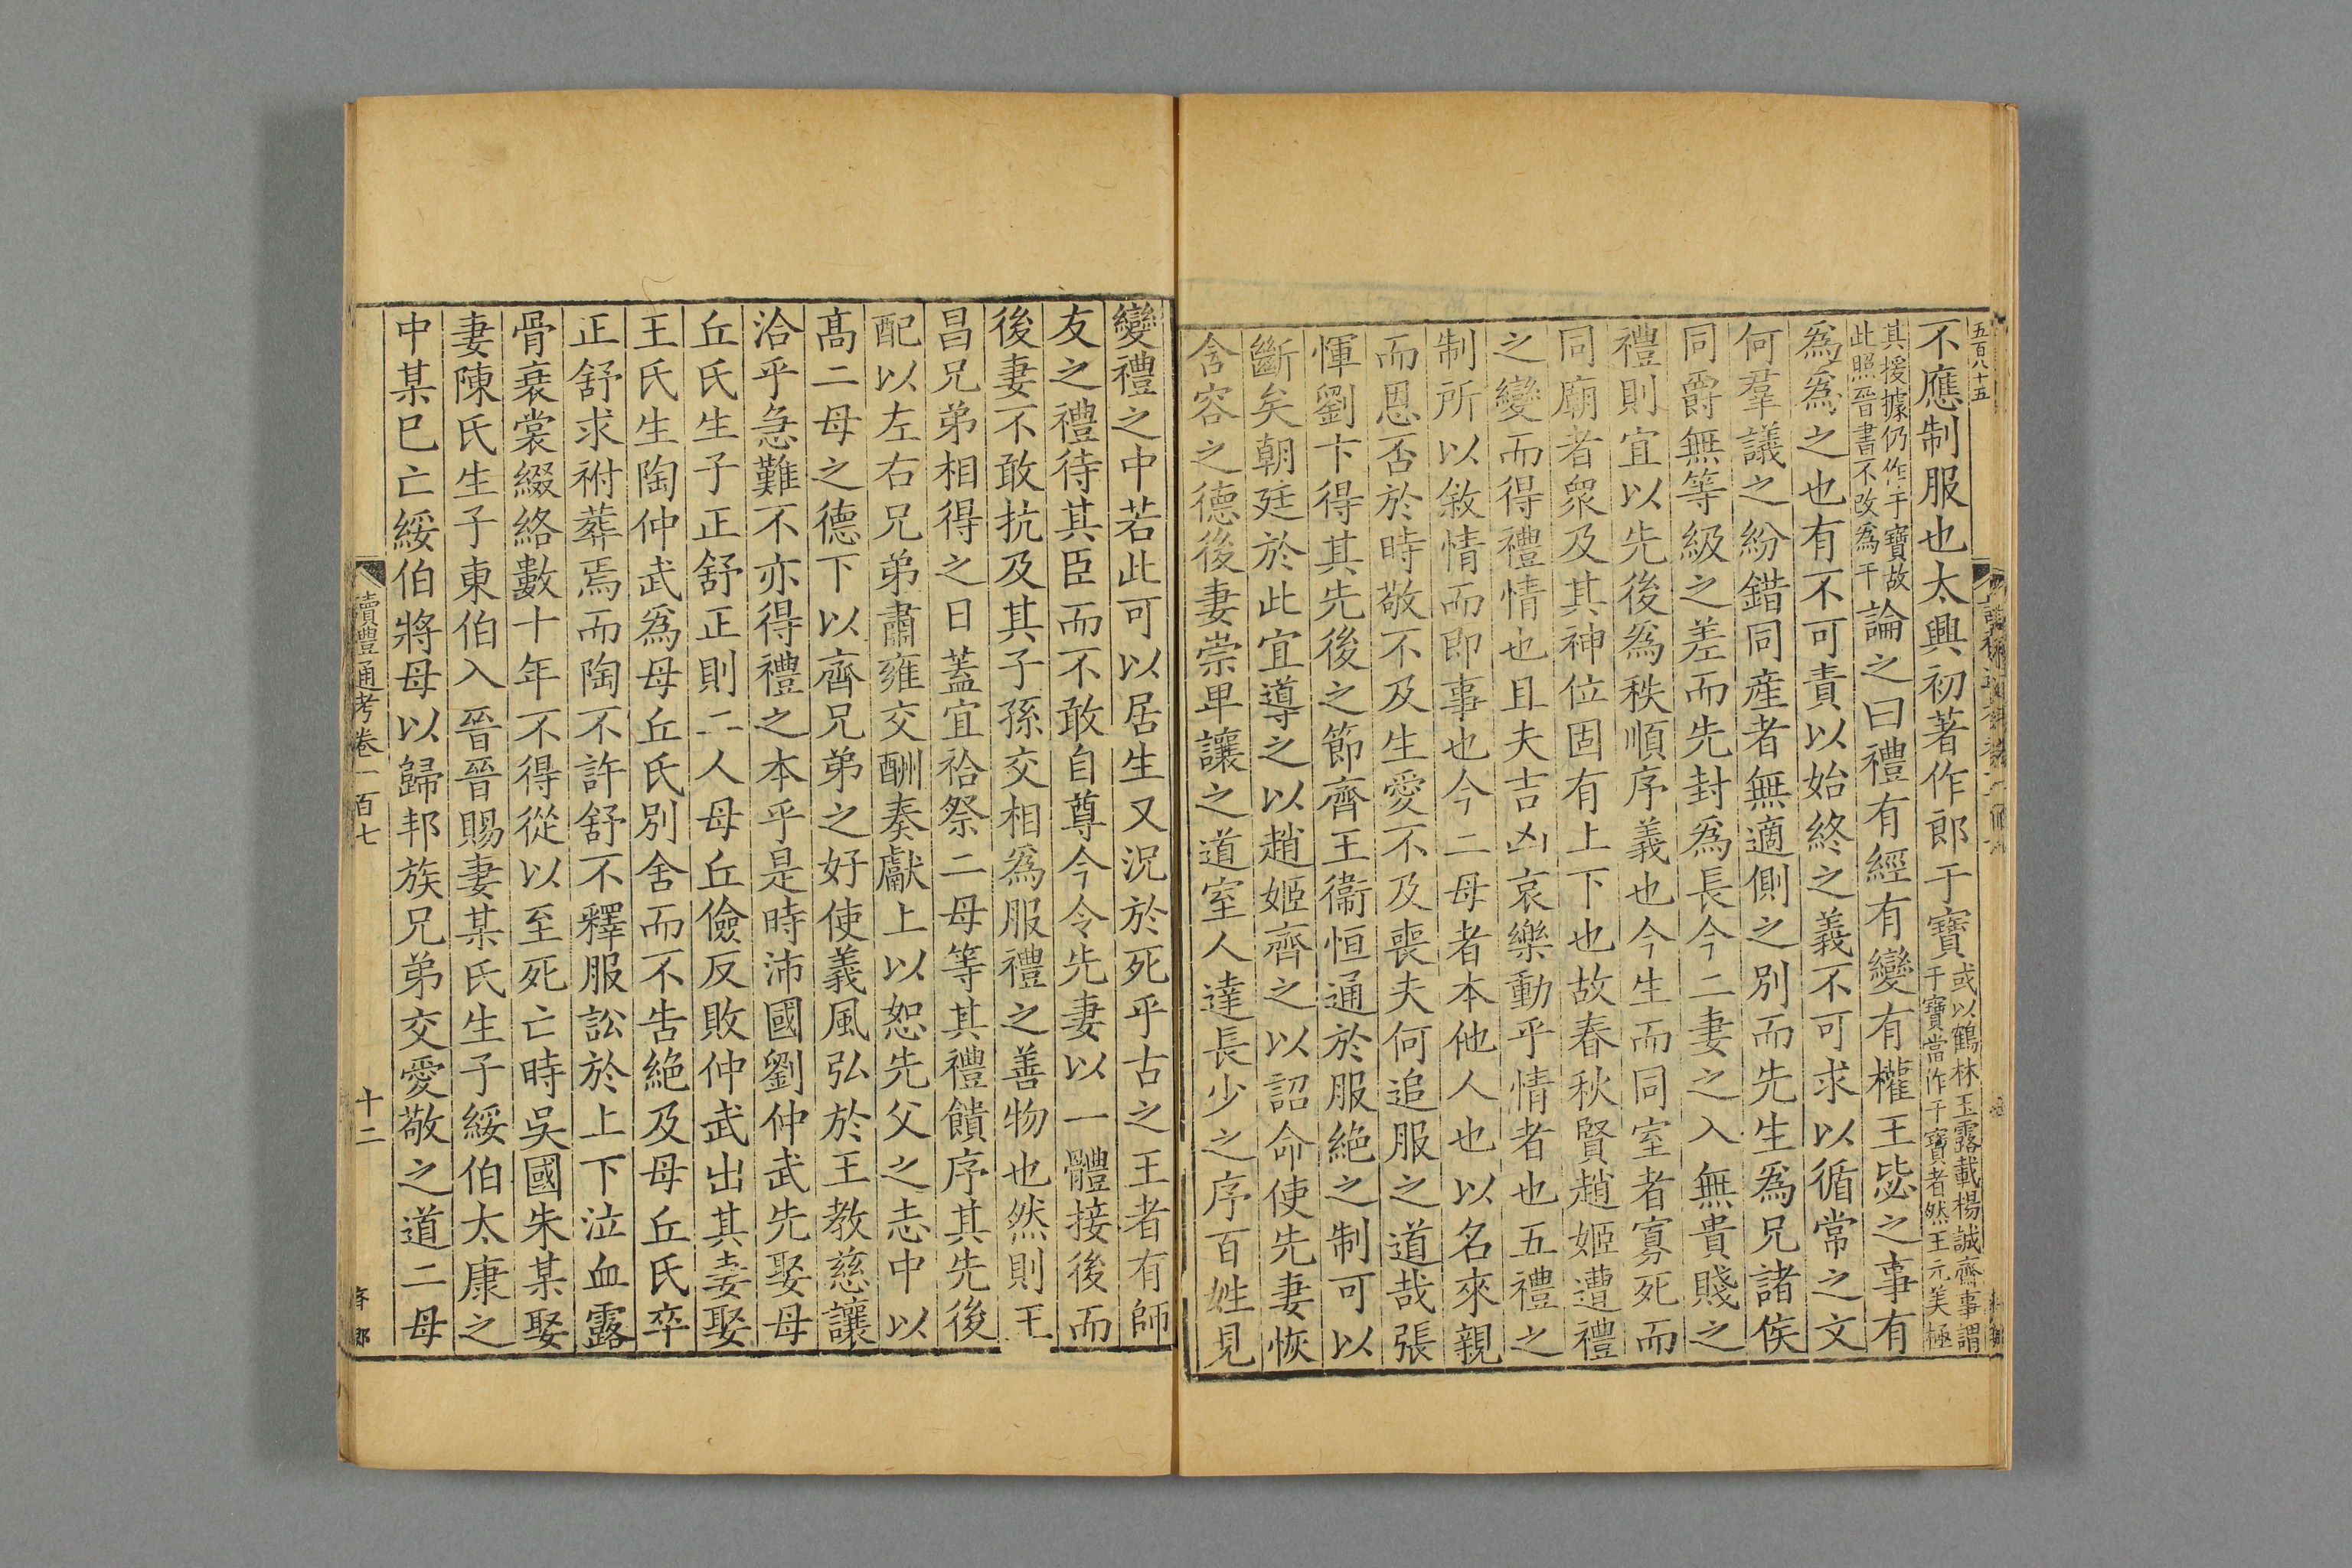 五百八十五
不應制服也太興初著作郎于寶或以鶴林玉露載楊誠齋事謂于寶當作干寶者然王元美極
其援據仍作于寶故此照晉書不改爲干論之曰禮有經有變有權王毖之事有
爲爲之也有不可責以始終之義不可求以循常之文
何羣議之紛錯同産者無適側之別而先生爲兄諸侯
同爵無等級之差而先封爲長今二妻之入無貴賤之
禮則宜以先後爲秩順序義也今生而同室者寡死而
同廟者衆及其神位固有上下也故春秋賢趙姬遭禮
之變而得禮情也且夫吉凶哀樂動乎情者也五禮之
制所以敘情而即事也今二母者本他人也以名來親
而恩否於時敬不及生愛不及喪夫何追服之道哉張
惲劉卞得其先後之節齊王衞恒通於服絶之制可以
斷矣朝廷於此宜導之以趙姬齊之以詔命使先妻恢
含容之德後妻崇卑讓之道室人達長少之序百姓見
變禮之中若此可以居生又況於死乎古之王者有師
友之禮待其臣而不敢自尊今令先妻以一體接後而
後妻不敢抗及其子孫交相爲服禮之善物也然則王
昌兄弟相得之日蓋宜祫祭二母等其禮饋序其先後
配以左右兄弟肅雍交酬奏獻上以恕先父之志中以
髙二母之德下以齊兄弟之好使義風弘於王教慈讓
洽乎急難不亦得禮之本乎是時沛國劉仲武先娶母
丘氏生子正舒正則二人母丘儉反敗仲武出其妻娶
王氏生陶仲武爲母丘氏別舍而不告絶及母丘氏卒
正舒求祔葬焉而陶不許舒不釋服訟於上下泣血露
骨衰裳綴絡數十年不得從以至死亡時吳國朱某娶
妻陳氏生子東伯入晉晉賜妻某氏生子綏伯太康之
中某已亡綏伯將母以歸邦族兄弟交愛敬之道二母
讀禮通考卷一百七
十二